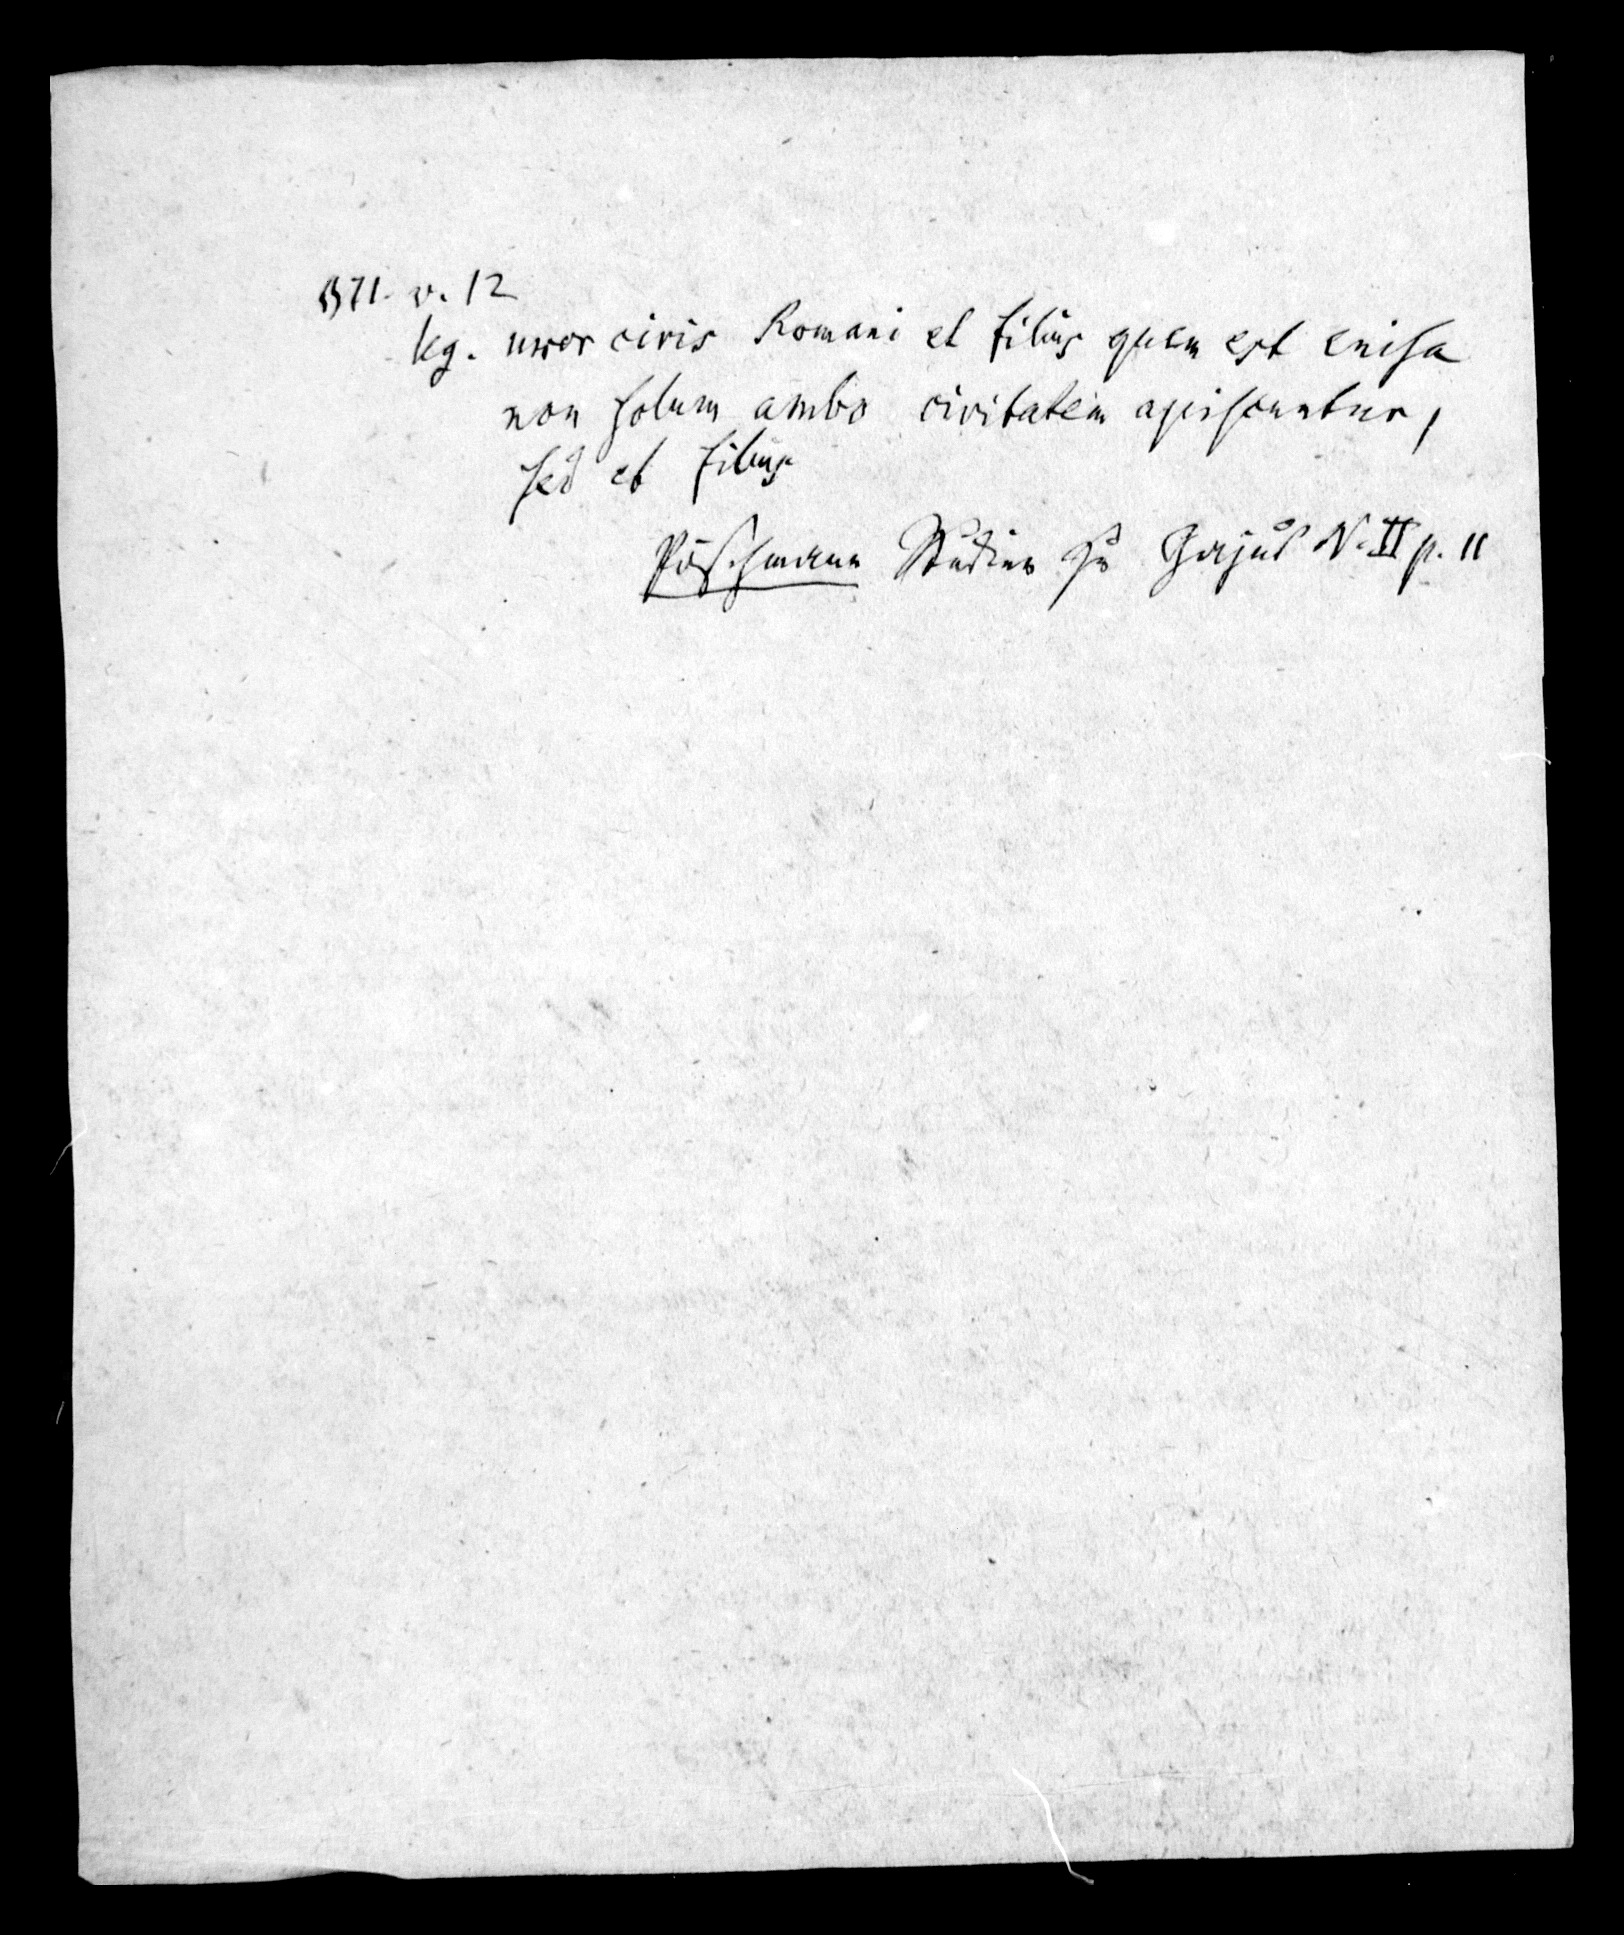 §71. v. 12
leg. uxor civis Romani et filius quem est enisa
non solum ambo civitatem apiscuntur,
sed et filius
Pöschmann Studien zu Gajus N. II p. 11